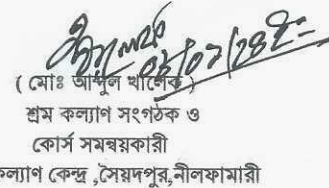 ( মোঃ আব্দুল খালেক )
শ্রম কল্যাণ সংগঠক ও
কোর্স সমন্বয়কারী
কল্যাণ কেন্দ্র ,সৈয়দপুর,নীলফামারী